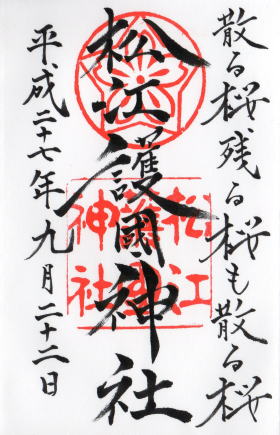 散る桜残る桜も散る桜
松江護國神社
平成二十七年九月二十二日
松江
護國
神社